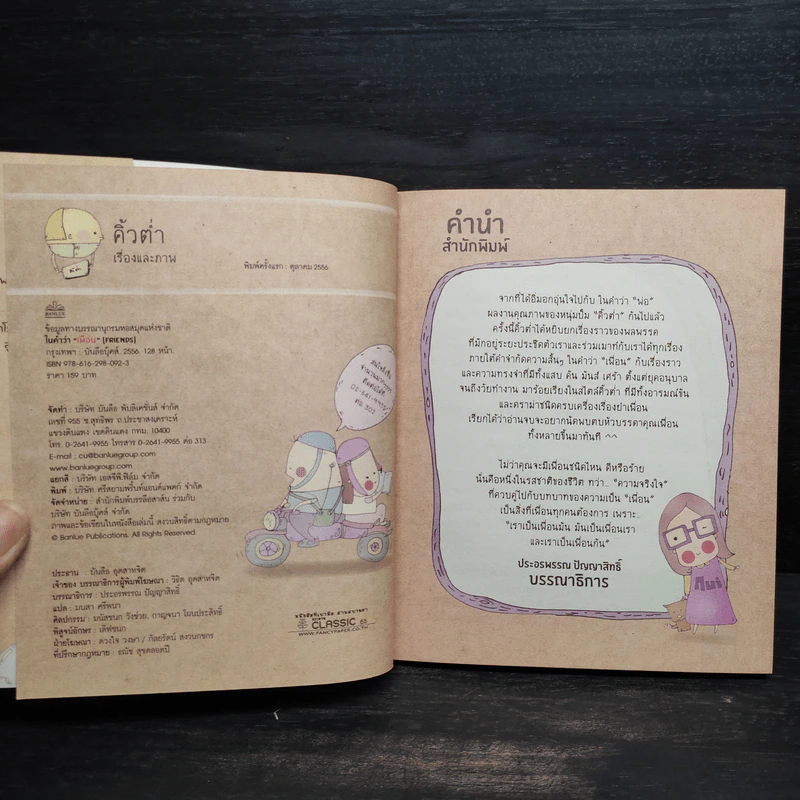 คิ้วต่ำ
เรื่องและภาพ
พิมพ์ครั้งแรก : ตุลาคม 2556
BANLUE
ข้อมูลทางบรรณานุกรมหอสมุดแห่งชาติ
ในคำว่า "เพื่อน" (FRIENDS)
กรุงเทพฯ : บันลือบุ๊คส์. 2556. 128 หน้า.
ISBN 978-616-298-092-3
ราคา 159 บาท
จัดทำ : บริษัท บันลือ พับลิเคชั่นส์ จำกัด
เลขที่ 955 ซ.สุทธิพร ถ.ประชาสงเคราะห์
แขวงดินแดง เขตดินแดง กทม. 10400
โทร. 0-2641-9955 โทรสาร 0-2641-9955 ต่อ 313
E-mail : cu@banluegroup.com
www.banluegroup.com
แยกสี : บริษัท เอสซีพี.ฟิล์ม จำกัด
พิมพ์ : บริษัท ศรีสยามพริ้นท์แอนด์แพคก์ จำกัด
จัดจำหน่าย : สำนักพิมพ์บรรลือสาส์น ร่วมกับ
บริษัท บันลือบุ๊คส์ จำกัด
ภาพและข้อเขียนในหนังสือเล่มนี้ สงวนสิทธิ์ตามกฎหมาย
© Banlue Publications. All Rights Reserved.
ประธาน : บันลือ อุตสาหจิต
เจ้าของ บรรณาธิการผู้พิมพ์โฆษณา : วิธิต อุตสาหจิต
บรรณาธิการ : ประอรพรรณ ปัญญาสิทธิ์
แปล : มนสา ศรีพนา
ศิลปกรรม : มนัสชนก วังช่วย, กาญจนา โฉนประสิทธิ์
พิสูจน์อักษร : เด็ฟชนก
ฝ่ายโฆษณา : ดวงใจ วงษา / กัลยรัตน์ สงวนภชกร
ที่ปรึกษากฎหมาย : ธณัช สุขตลอดปี
สนใจสั่งซื้อ
จำนวนมาก
ติดต่อได้ที่
02-641-9955
ต่อ 301
CLASSIC 65
WWW.FANCYPAPER.CO.TH
คำนำ
สำนักพิมพ์
จากที่ได้อิ่มอกอุ่นใจไปกับ ในคำว่า "พ่อ"
ผลงานคุณภาพของหนุ่มปั๋ม "คิ้วต่ำ" กันไปแล้ว
ครั้งนี้คิ้วต่ำได้หยิบยกเรื่องราวของพลพรรค
ที่มักอยู่ระยะประชิดตัวเราและร่วมเมาท์กับเราได้ทุกเรื่อง
ภายใต้คำจำกัดความสั้นๆ ในคำว่า "เพื่อน" กับเรื่องราว
และความทรงจำที่มีทั้งแสบ คัน มันส์ เศร้า ตั้งแต่ยุคอนุบาล
จนถึงวัยทำงาน มาร้อยเรียงในสไตล์คิ้วต่ำ ที่มีทั้งอารมณ์ขัน
และดราม่าชนิดครบเครื่องเรื่องยำเพื่อน
เรียกได้ว่าอ่านจบจะอยากนัดพบตบหัวบรรดาคุณเพื่อน
ทั้งหลายขึ้นมาทันที ^^
ไม่ว่าคุณจะมีเพื่อนชนิดไหน ดีหรือร้าย
นั่นคือหนึ่งในรสชาติของชีวิต ทว่า.. "ความจริงใจ"
ที่ควบคู่ไปกับบทบาทของความเป็น "เพื่อน"
เป็นสิ่งที่เพื่อนทุกคนต้องการ เพราะ..
"เราเป็นเพื่อนมัน มันเป็นเพื่อนเรา
และเราเป็นเพื่อนกัน"
ประอรพรรณ ปัญญาสิทธิ์
บรรณาธิการ